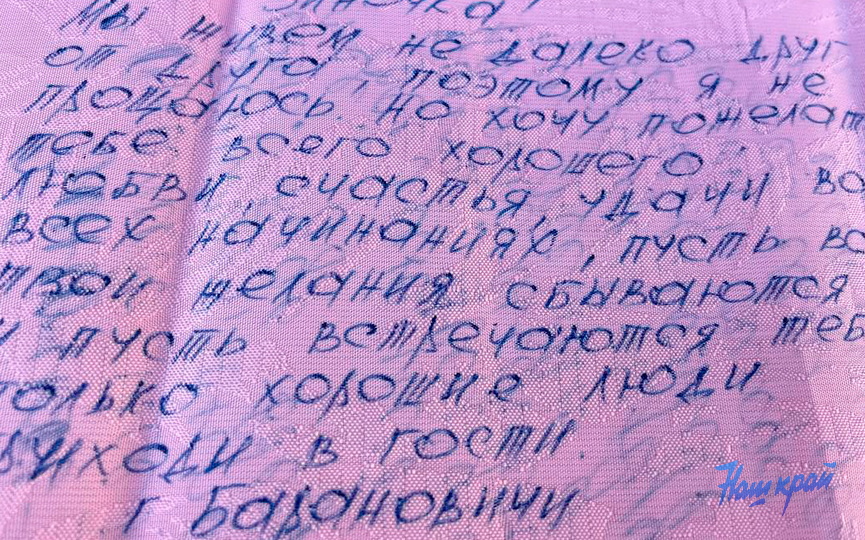 Мы живем не далеко друг
от друга, поэтому я не
прощаюсь. Но хочу пожелат
тебе всего хорошего
любви, счастья, удачи во
всех начинаниях, пусть вс
твои желания сбываются
и пусть встречаются теб
только хорошие люди
риходи в гости.
г Барановичи
Наш край